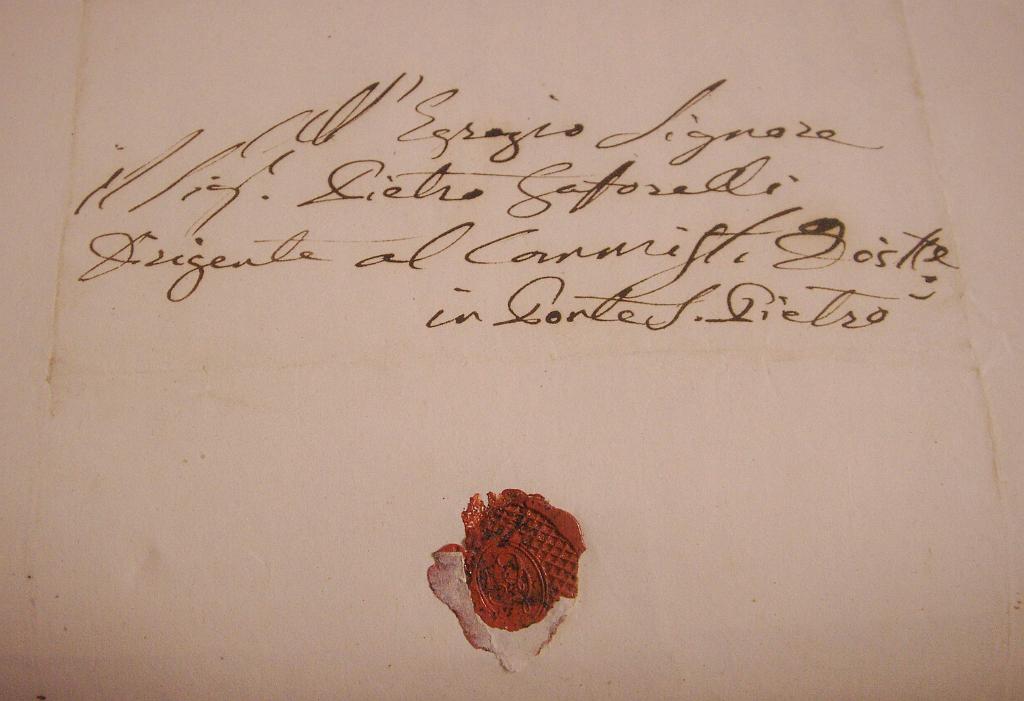 All' Egregio Signore
il Sigr. Pietro Gafforelli
Dirigente al Commist. Distte
in Ponte S. Pietro